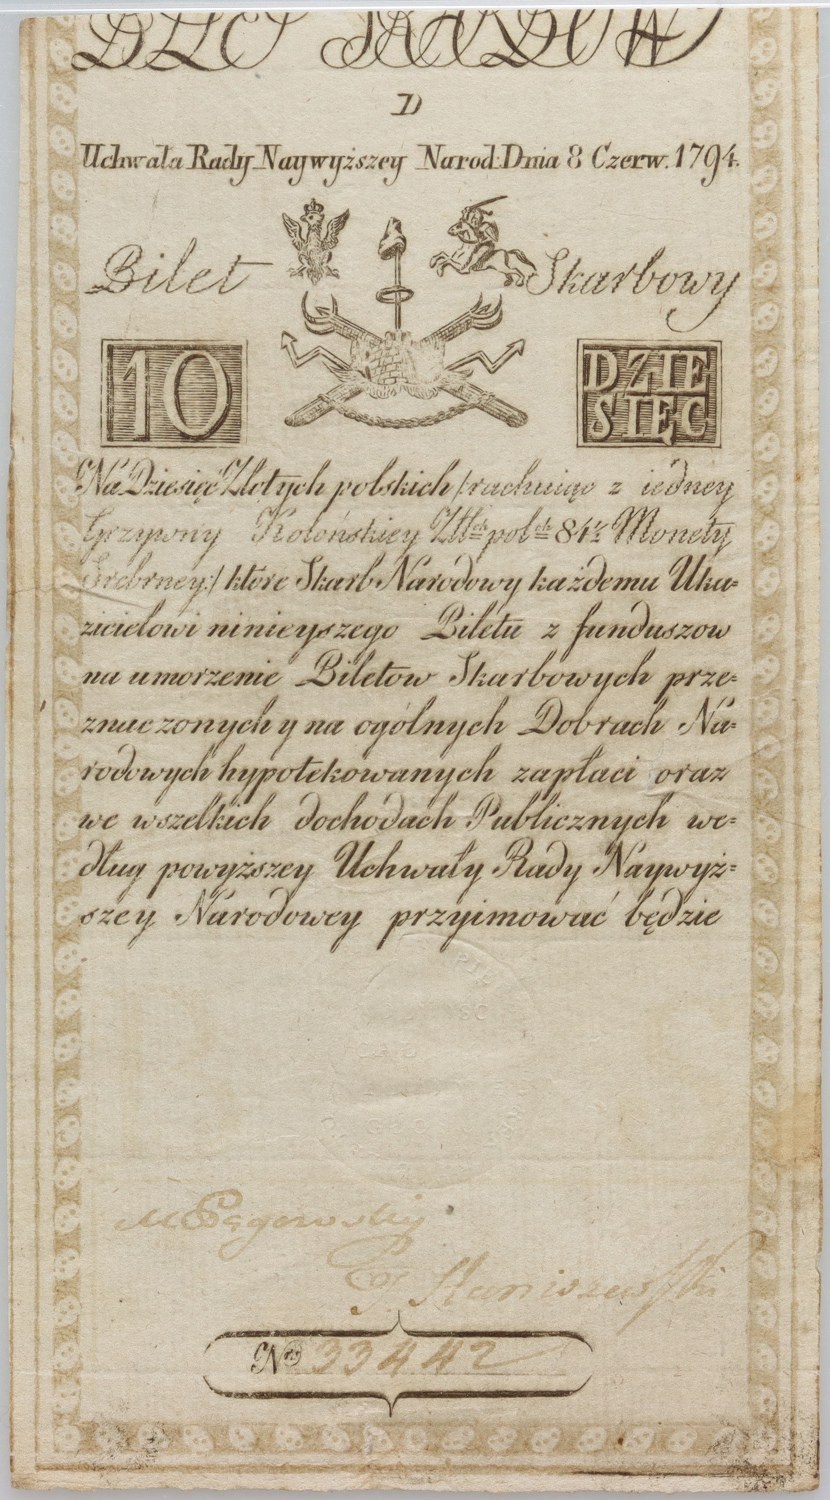 D
Uchwała Rady Naywyższey Narod: Dnia 8 Czerw. 1794.
Bilet Skarbowy
10
DZIE
SIĘC
Na Dziesięć Złotych polskich /:rachuiąc z iedney
Grzywny Kolońskiey Złł.ch pol.ch 84½ Monety
Srebrney:/ które Skarb Narodowy każdemu Uka=
zicielowi ninieyszego Biletu z funduszow
na umorzenie Biletow Skarbowych prze=
znaczonych y na ogólnych Dobrach Na=
rodowych hypotekowanych zapłaci oraz
we wszelkich dochodach Publicznych we=
dług powyższey Uchwały Rady Naywyż=
szey Narodowey przyimować będzie
M Pągowski
Staniszewski
No 33442